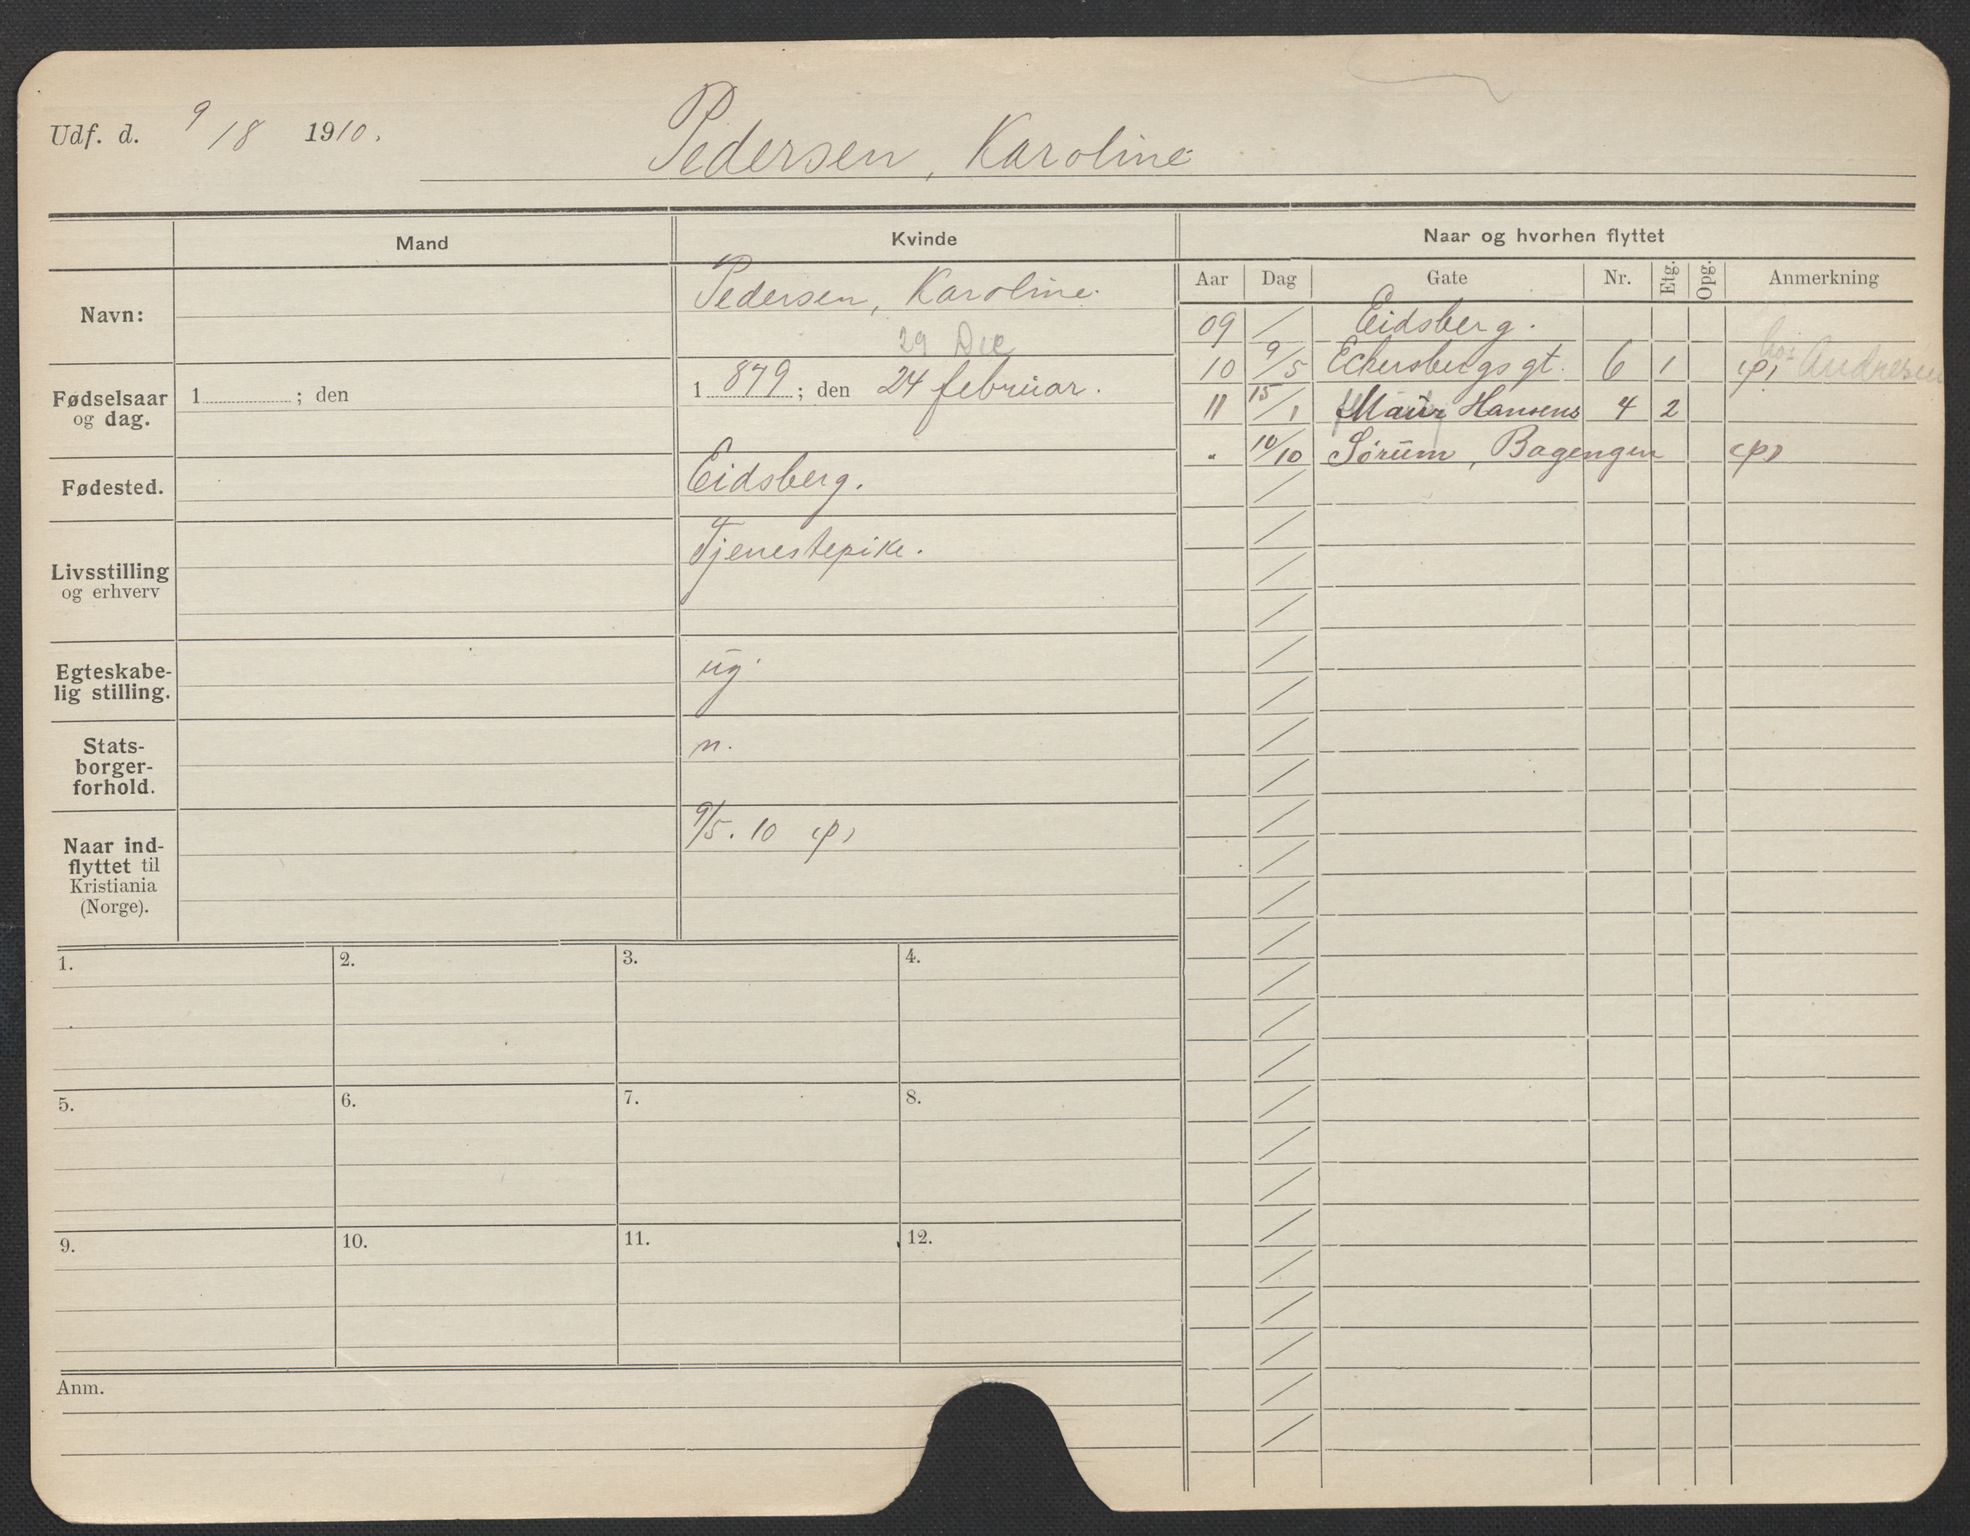 Udf. d. 9/18 1910.
Pedersen, Karoline
Mand
Kvinde
Naar og hvorhen flyttet
Navn:
Pedersen, Karoline.
29 Dec
Fødselsaar og dag.
1 ; den
1 879 ; den 24 februar.
Fødested.
Eidsberg.
Livsstilling og erhverv
Tjenestepike.
Egteskabe-
lig stilling.
ug.
Stats-
borger-
forhold.
n.
Naar ind-
flyttet til
Kristiania
(Norge).
9/5. 10 (p)
Aar Dag Gate Nr. Etg. Opg. Anmerkning
09 / Eidsberg.
10 9/5 Eckersbergs gt. 6 1 (p) hos Andresen
11 15/1 Maur Hansens 4 2
" 10/10 Sørum, Bagengen (p)
1. 2. 3. 4.
5. 6. 7. 8.
9. 10. 11. 12.
Anm.